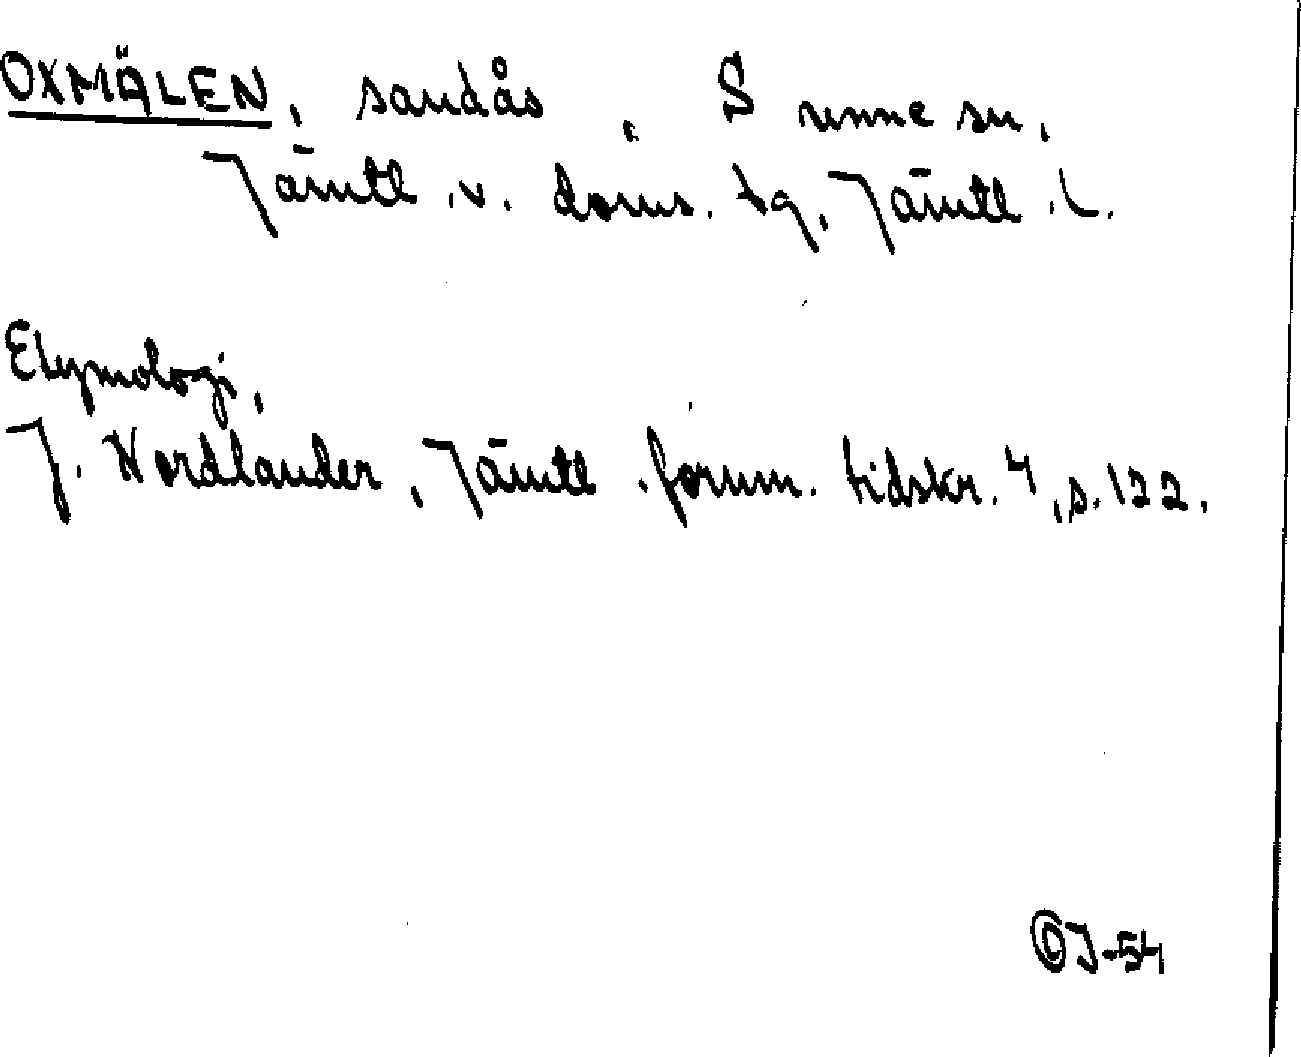 OXMÄLEN, sandås, Sunne sn,
Jämtl. v. doms. tg, Jämtl. l.
Etymologi,
J. Nordlander, Jämtl. fornm. tidskr. 4, s. 122.
OJ-54